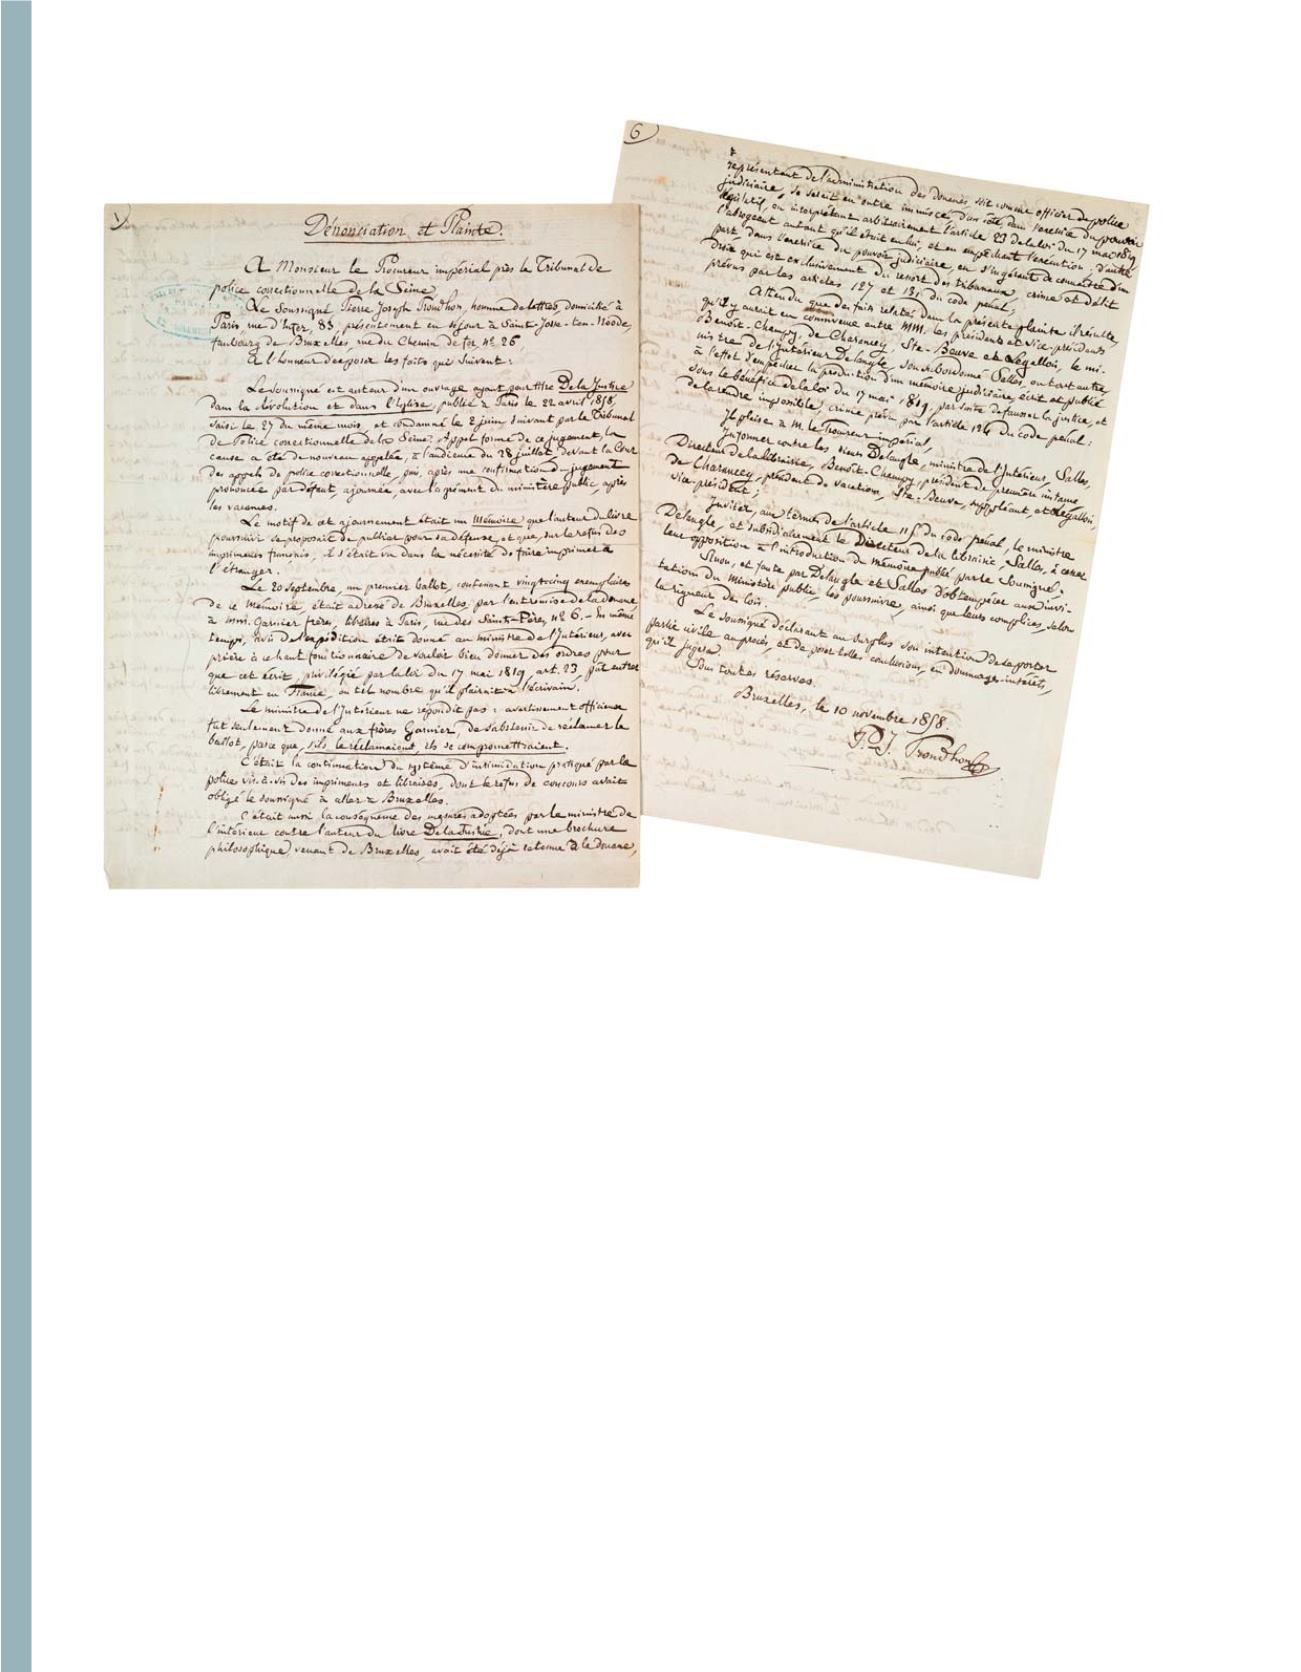 1)
Dénonciation et Plainte.
A Monsieur le Procureur impérial près le Tribunal de
police correctionnelle de la Seine.
Le Soussigné Pierre Joseph Proudhon, homme de lettres, domicilié à
Paris, rue d'Enfer, 83, présentement en séjour à Saint-Josse-ten-Noode,
faubourg de Bruxelles, rue du Chemin de fer, Nº 26,
A l'honneur d'exposer les faits qui suivent :
Le Soussigné est auteur d'un ouvrage ayant pour titre De la Justice
dans la Révolution et dans l'Eglise, publié à Paris le 22 avril 1858,
saisi le 27 du même mois, et condamné le 2 juin suivant par le Tribunal
de Police correctionnelle de la Seine. Appel formé de ce jugement, la
cause a été de nouveau appelée, à l'audience du 28 juillet, devant la Cour
des appels de police correctionnelle, puis, après une confirmation de jugement
prononcée par défaut, ajournée, avec l'agrément du ministère public, après
les vacances.
Le motif de cet ajournement était un Mémoire que l'auteur du livre
poursuivi se proposait de publier pour sa défense, et que, sur le refus des
imprimeurs français, il s'était vu dans la nécessité de faire imprimer à
l'étranger.
Le 20 septembre, un premier ballot, contenant vingt-cinq exemplaires
de ce Mémoire, était adressé de Bruxelles par l'entremise de la douane
à MM. Garnier frères, libraires à Paris, rue des Saints-Pères, Nº 6. - En même
temps, avis de l'expédition était donné au ministre de l'Intérieur, avec
prière à ce haut fonctionnaire de vouloir bien donner des ordres pour
que cet écrit, privilégié par la loi du 17 mai 1819, art. 23, pût entrer
librement en France, en tel nombre qu'il plairait à l'écrivain.
Le ministre de l'Intérieur ne répondit pas : avertissement officieux
fut seulement donné aux frères Garnier, de s'abstenir de réclamer le
ballot, parce que, s'ils le réclamaient, ils se compromettraient.
C'était la continuation du système d'intimidation pratiqué par la
police vis-à-vis des imprimeurs et libraires, dont le refus de concours avait
obligé le soussigné à aller à Bruxelles.
C'était aussi la conséquence des mesures adoptées par le ministre de
l'intérieur contre l'auteur du livre De la Justice, dont une brochure
philosophique, venant de Bruxelles, avait été déjà retenue à la douane,
6
représentant de l'administration des douanes, soit comme officier de police
judiciaire, se serait en outre immiscé, d'un côté, dans l'exercice du pouvoir
législatif, en interprétant arbitrairement l'article 23 de la loi du 17 mai 1819,
l'abrogeant autant qu'il était en lui, et en empêchant l'exécution ; d'autre
part, dans l'exercice du pouvoir judiciaire, en s'ingérant de connaître d'un
droit qui est exclusivement du ressort des tribunaux, crime et délit
prévus par les articles 127 et 131 du code pénal ;
Attendu que des faits relatés dans la présente plainte il résulte
qu'il y aurait eu connivence entre MM. les présidents et vice-présidents
Benoît-Champy, de Charencey, Ste-Beuve et Legallois, le mi-
nistre de l'Intérieur Delangle, son subordonné Salles, ou tout autre,
à l'effet d'empêcher la production d'un mémoire judiciaire, écrit et publié
sous le bénéfice de la loi du 17 mai 1819, par suite de fausser la justice, et
de la rendre impossible, crime prévu par l'article 124 du code pénal :
Il plaise à M. le Procureur impérial,
Informer contre les sieurs Delangle, ministre de l'Intérieur, Salles,
Directeur de la librairie, Benoît-Champy, président de première instance,
de Charencey, président de vacation, Ste-Beuve, suppléant, et Legallois,
vice-président ;
Inviter, aux termes de l'article 115 du code pénal, le ministre
Delangle, et subsidiairement le Directeur de la librairie, Salles, à cesser
leur opposition à l'introduction du mémoire publié par le soussigné,
Sinon, et faute par Delangle et Salles d'obtempérer aux invi-
tations du Ministère public, les poursuivre, ainsi que leurs complices, selon
la rigueur des lois.
Le soussigné déclarant au surplus son intention de se porter
partie civile au procès, et de poser telles conclusions, en dommages-intérêts,
qu'il jugera.
Sous toutes réserves.
Bruxelles, le 10 novembre 1858.
P. J. Proudhon